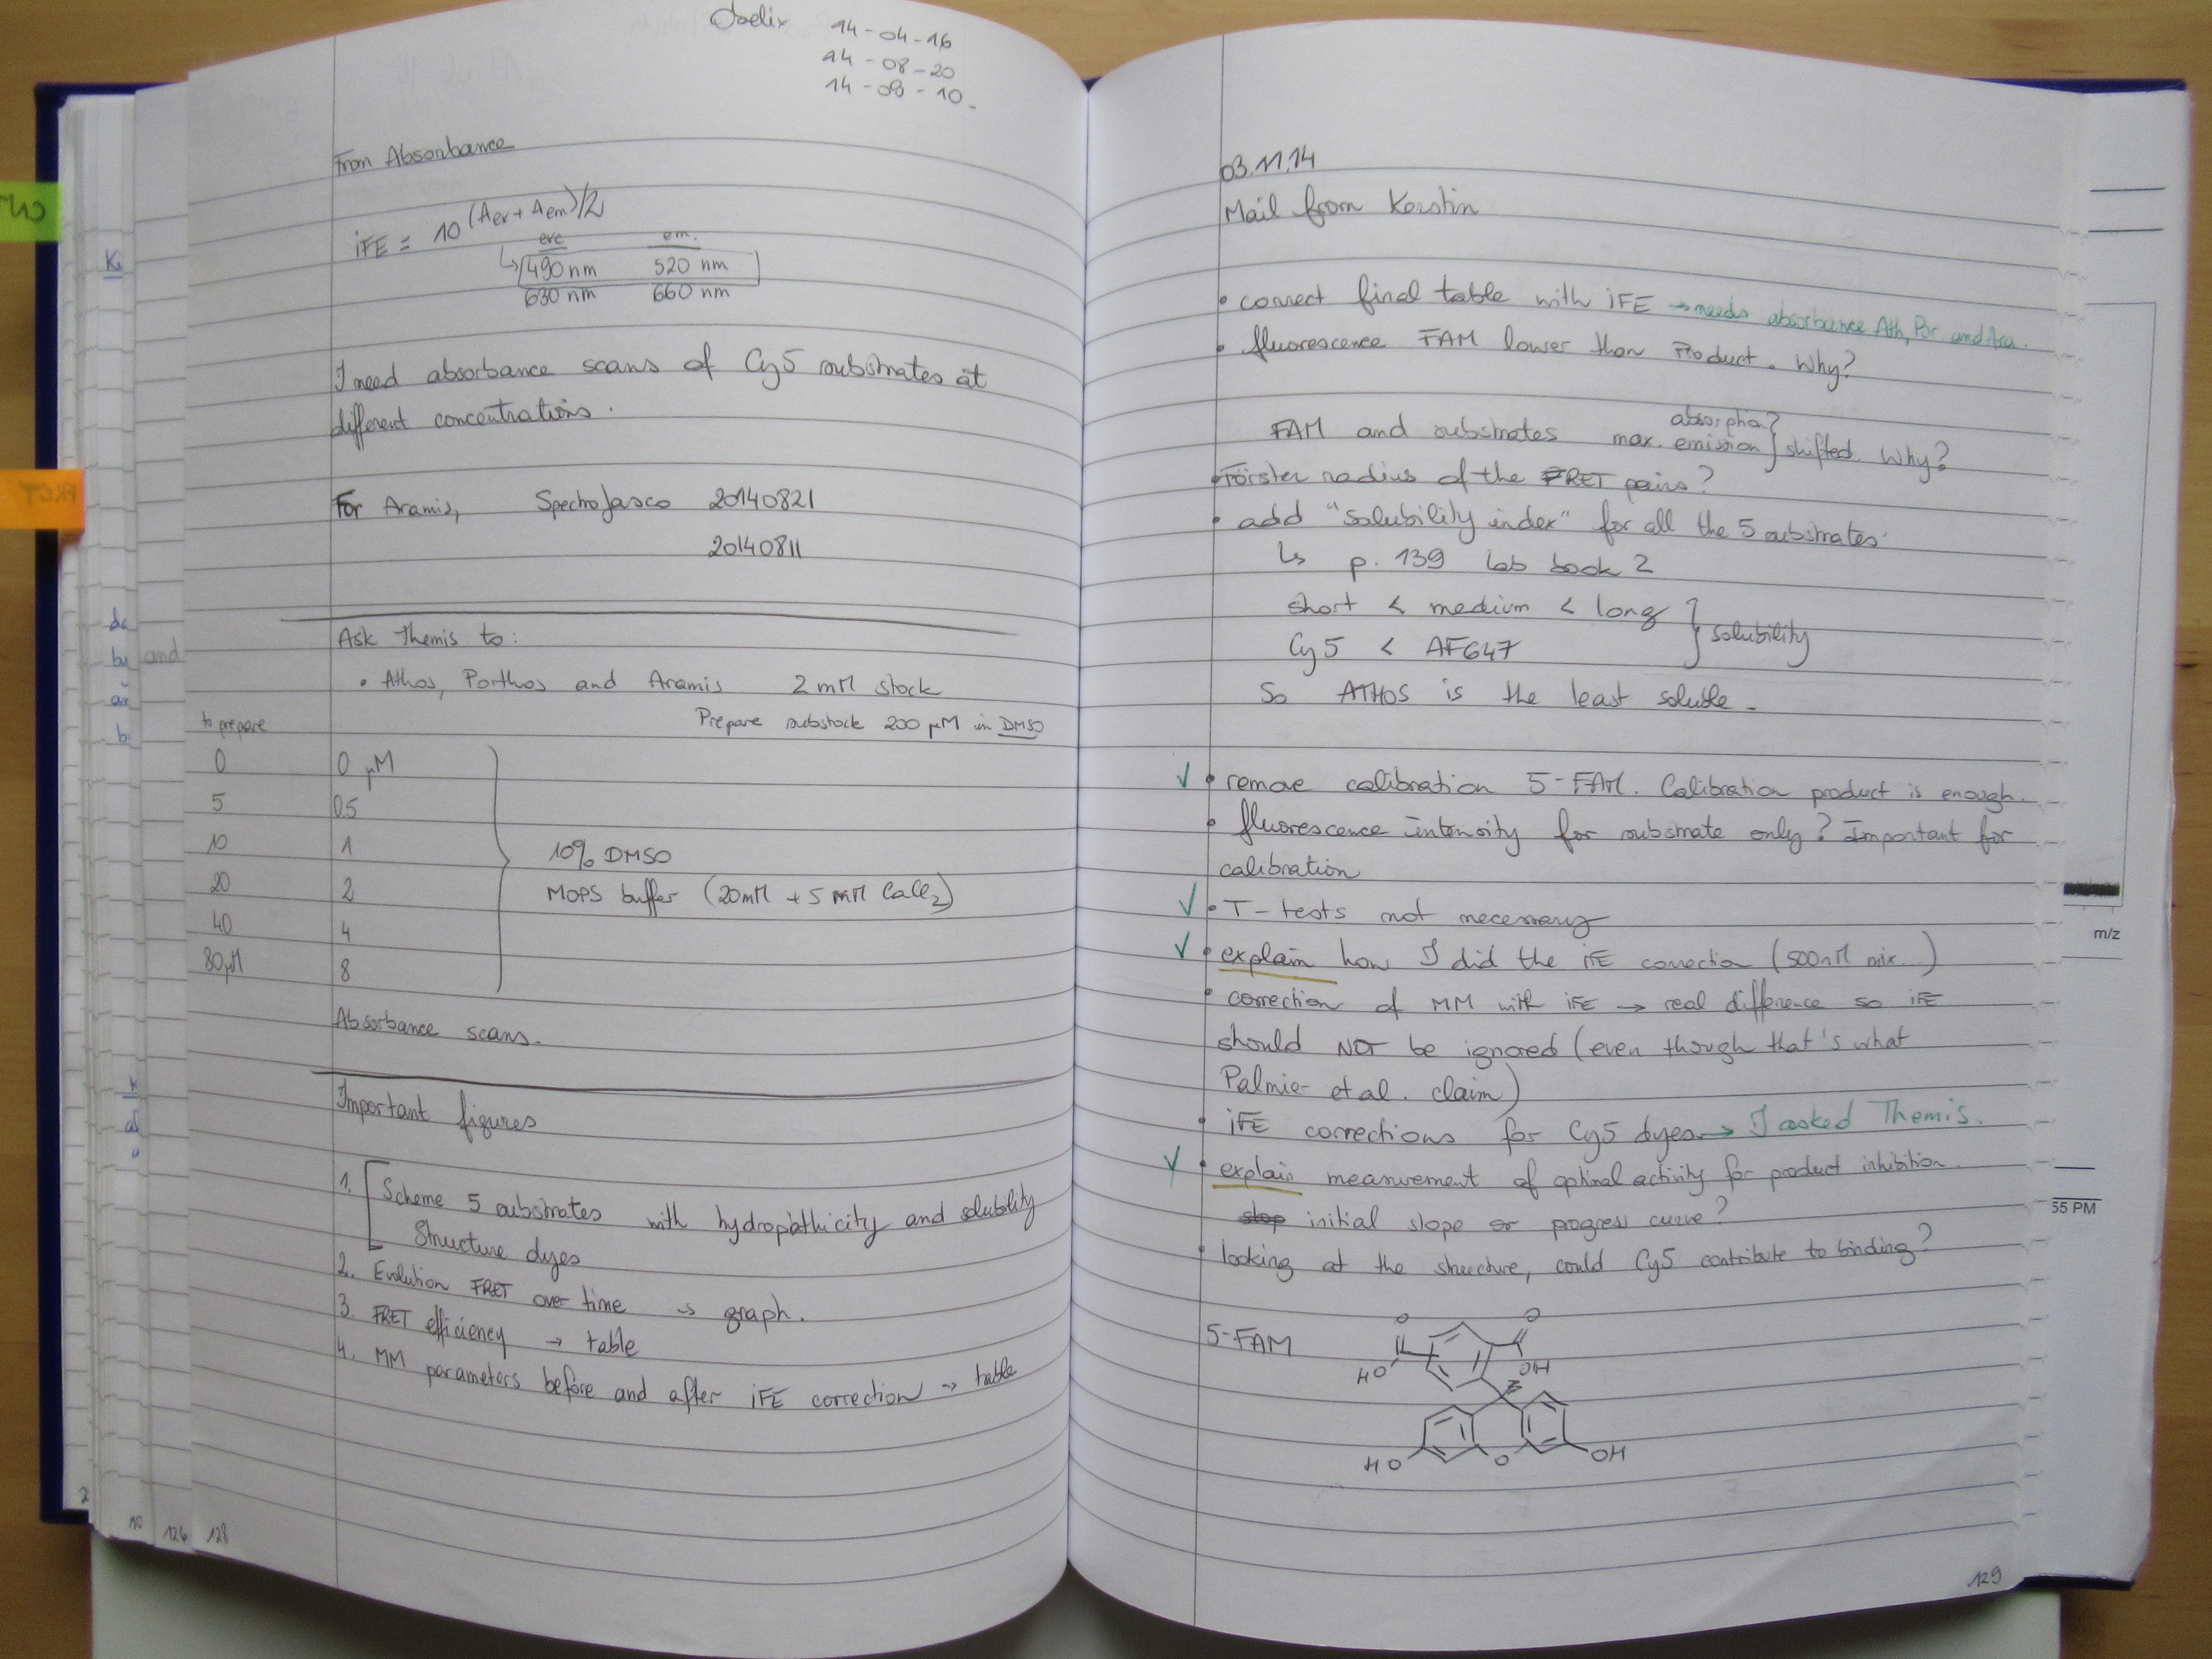 14-04-16
14-08-20
14-08-10
From Absorbance
iFE = 10^(Aex + Aem)/2
exc em.
490 nm 520 nm
630 nm 660 nm
I need absorbance scans of Cy5 substrates at
different concentrations.
For Aramis, SpectroJasco 20140821
20140811
Ask Themis to:
• Athos, Porthos and Aramis 2 mM stock
Prepare substock 200 µM in DMSO
to prepare
0 0 µM
5 0.5
10 1
20 2
40 4
80µM 8
10% DMSO
MOPS buffer (20mM + 5 mM CaCl2)
Absorbance scans.
Important figures
1. Scheme 5 substrates with hydropathicity and solubility
Structure dyes
2. Evolution FRET over time → graph.
3. FRET efficiency → table
4. MM parameters before and after iFE correction → table
10 126 128
03.11.14
Mail from Kerstin
• correct final table with iFE → needs absorbance Ath, Por. and Ara.
• fluorescence FAM lower than Product. Why?
FAM and substrates max. absorption emission } shifted. Why?
• Förster radius of the FRET pairs?
• add "solubility index" for all the 5 substrates
↳ p. 139 lab book 2
short < medium < long
Cy5 < AF647
} solubility
So ATHOS is the least soluble.
✓ • remove calibration 5-FAM. Calibration product is enough.
• fluorescence intensity for substrate only? Important for
calibration
✓ • T-tests not necessary
✓ • explain how I did the iFE correction (500nM mix...)
• correction of MM with iFE → real difference so iFE
should NOT be ignored (even though that's what
Palmier et al. claim)
• iFE corrections for Cy5 dyes → I asked Themis.
✓ • explain measurement of optimal activity for product inhibition
initial slope or progress curve?
• looking at the structure, could Cy5 contribute to binding?
5-FAM
O O
HO OH
HO O OH
129
m/z
55 PM